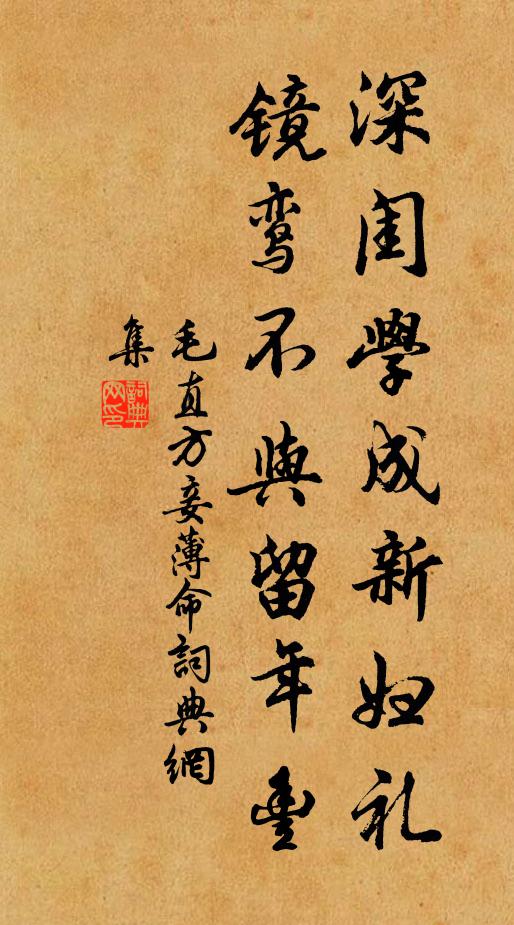 深闺學成新妇礼
镜鸾不與留年豊
毛直方妾薄命詞典網
集
詞典
网印